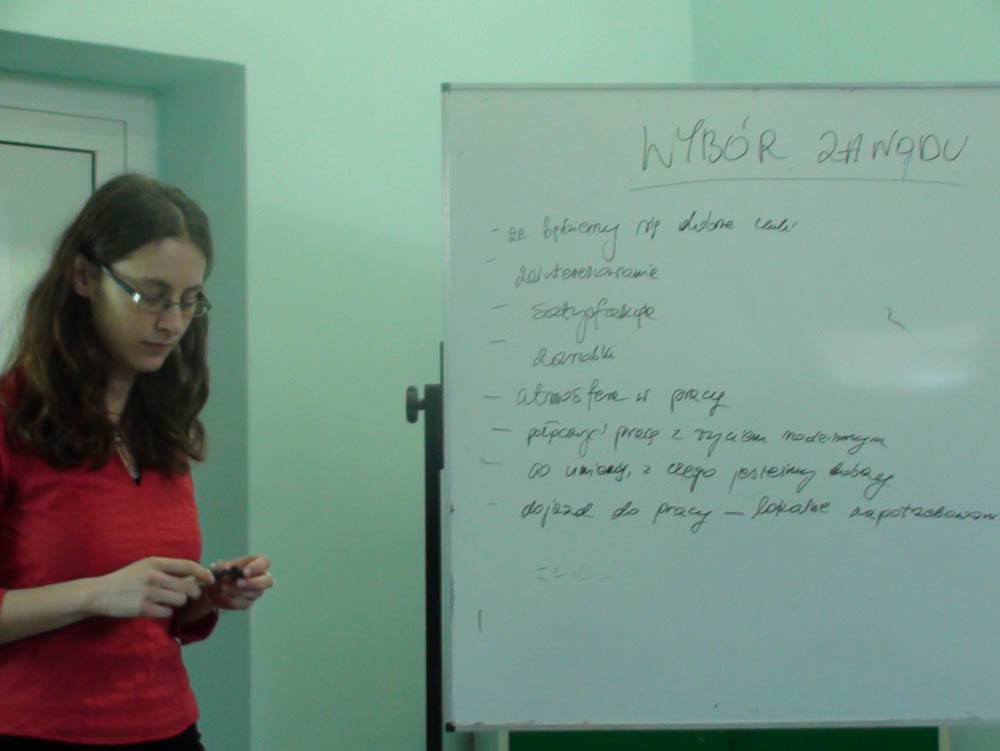 WYBÓR ZAWODU
- że będziemy się dobrze czuli
- zainteresowanie
- satysfakcja
- zarobki
- atmosfera w pracy
- połączyć pracę z życiem rodzinnym
- co umiemy, z czego jesteśmy dobrzy
- dojazd do pracy - lokalne zapotrzebowan